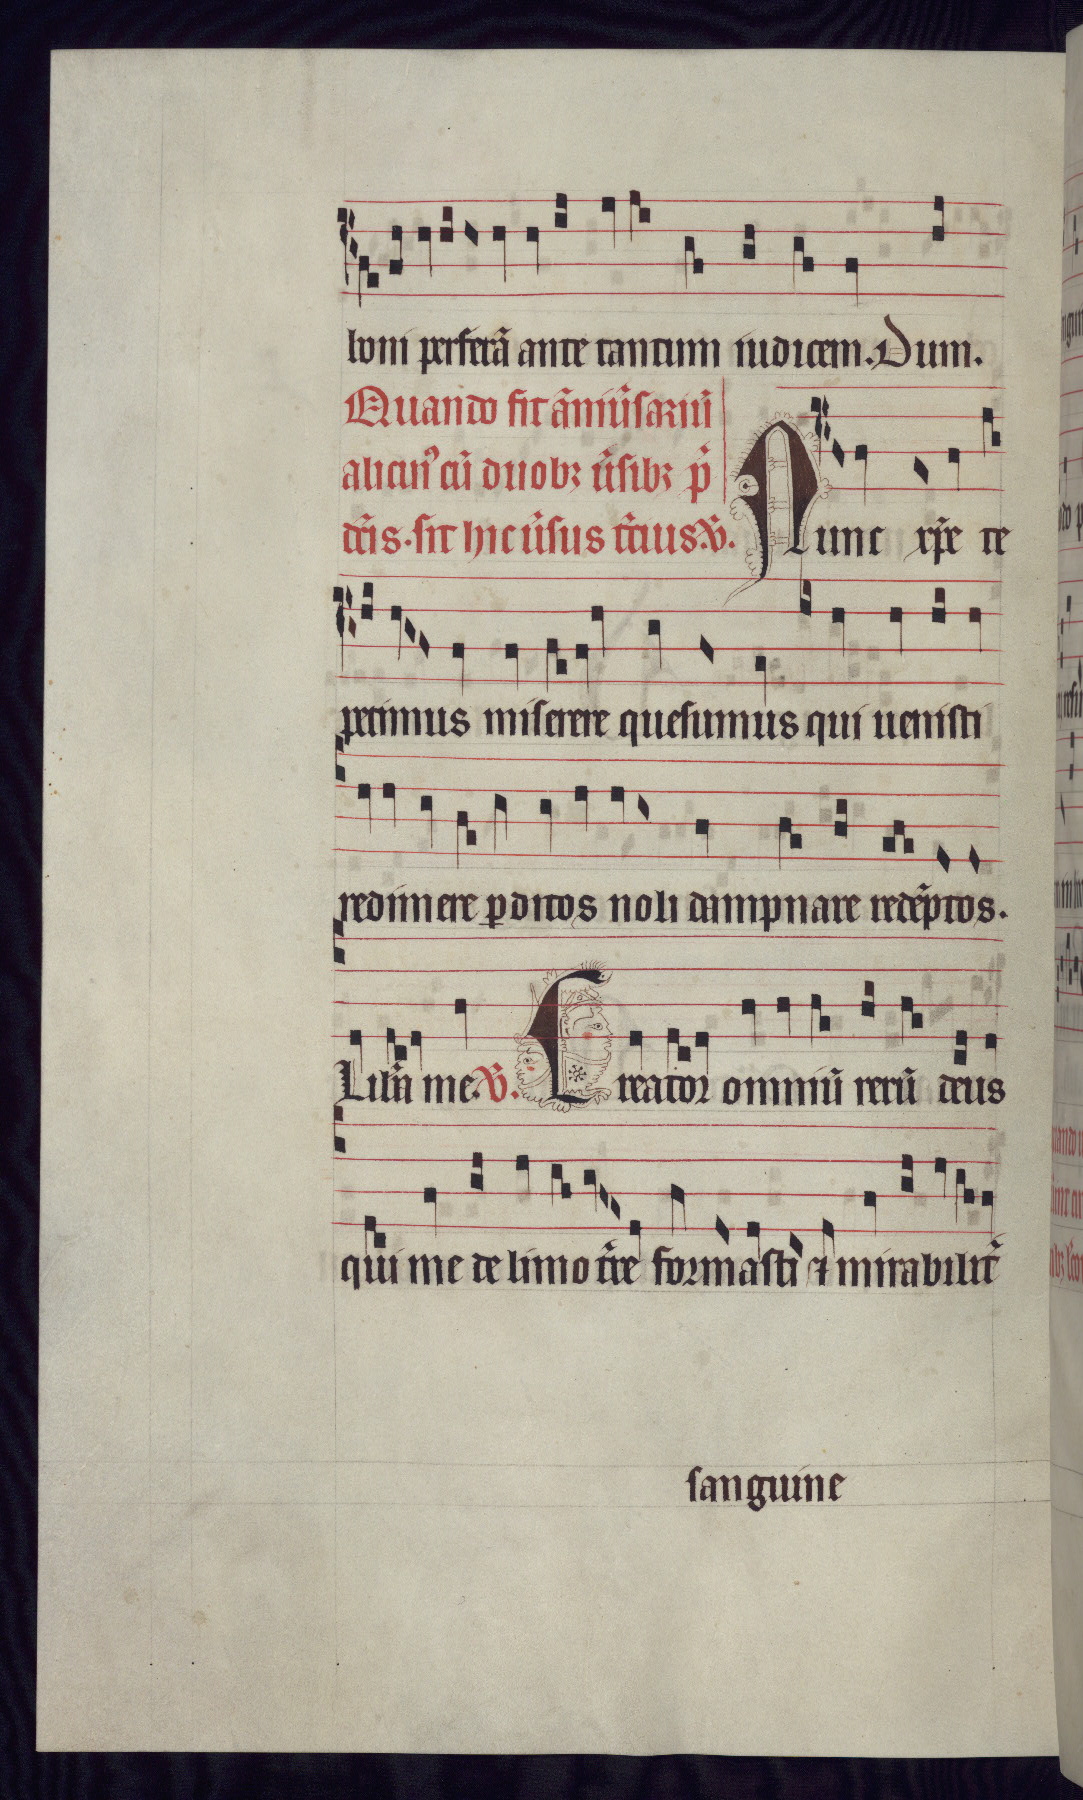 boni perferã ante tantum iudicem. Dum.
Quando fit ãniũsariũ
alicuiꝰ cũ duobꝫ ũsibꝫ p̃
dc̃is. sit hic ũsus t̃cius. v̄.
Nunc xp̃e te
petimus miserere quesumus qui uenisti
redimere ꝑditos noli dampnare redẽptos.
Lib̃a me. v̄. Creator omniũ rerũ deus
qui me de limo t̃re formasti & mirabilit̃
sanguine